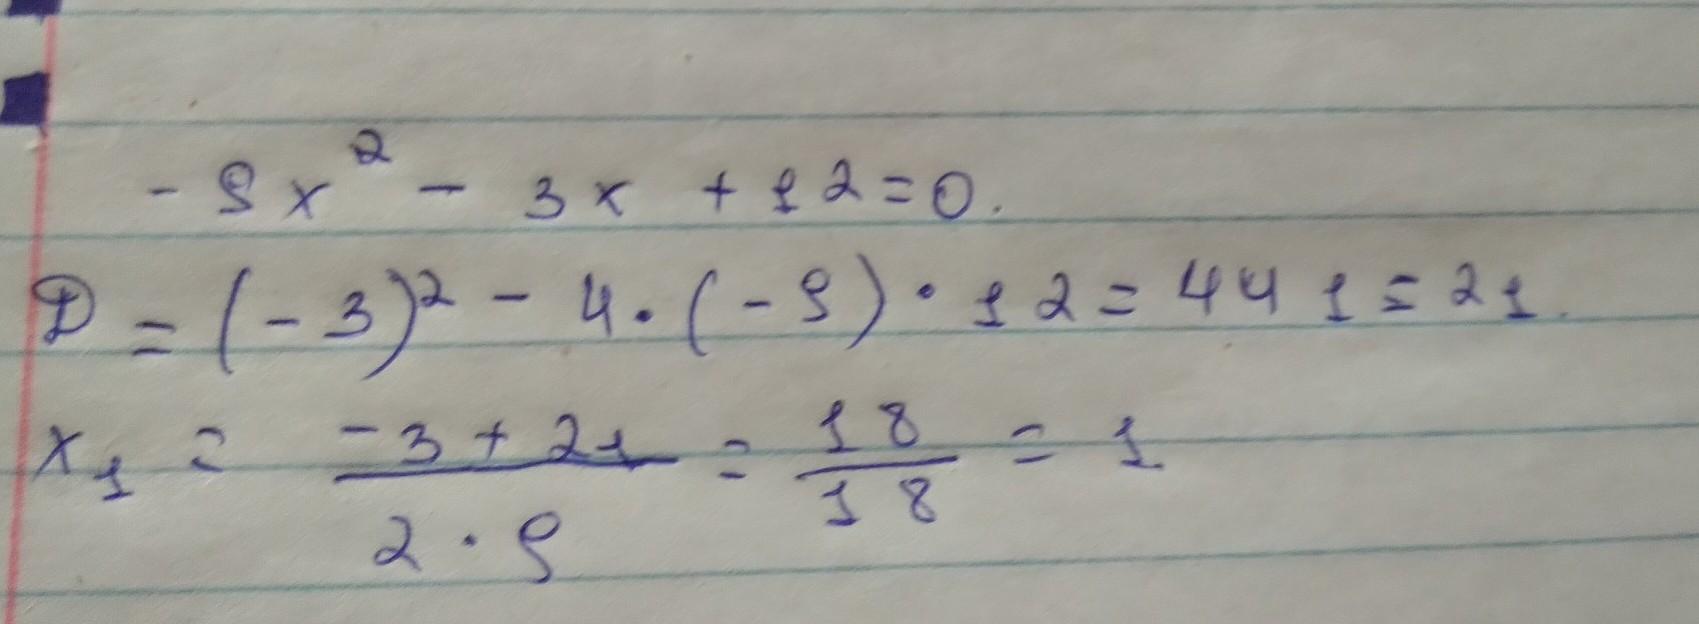 -9x² - 3x + 12 = 0.
D = (-3)² - 4·(-9)·12 = 441 = 21.
x₁ = \frac{-3 + 21}{2·9} = \frac{18}{18} = 1